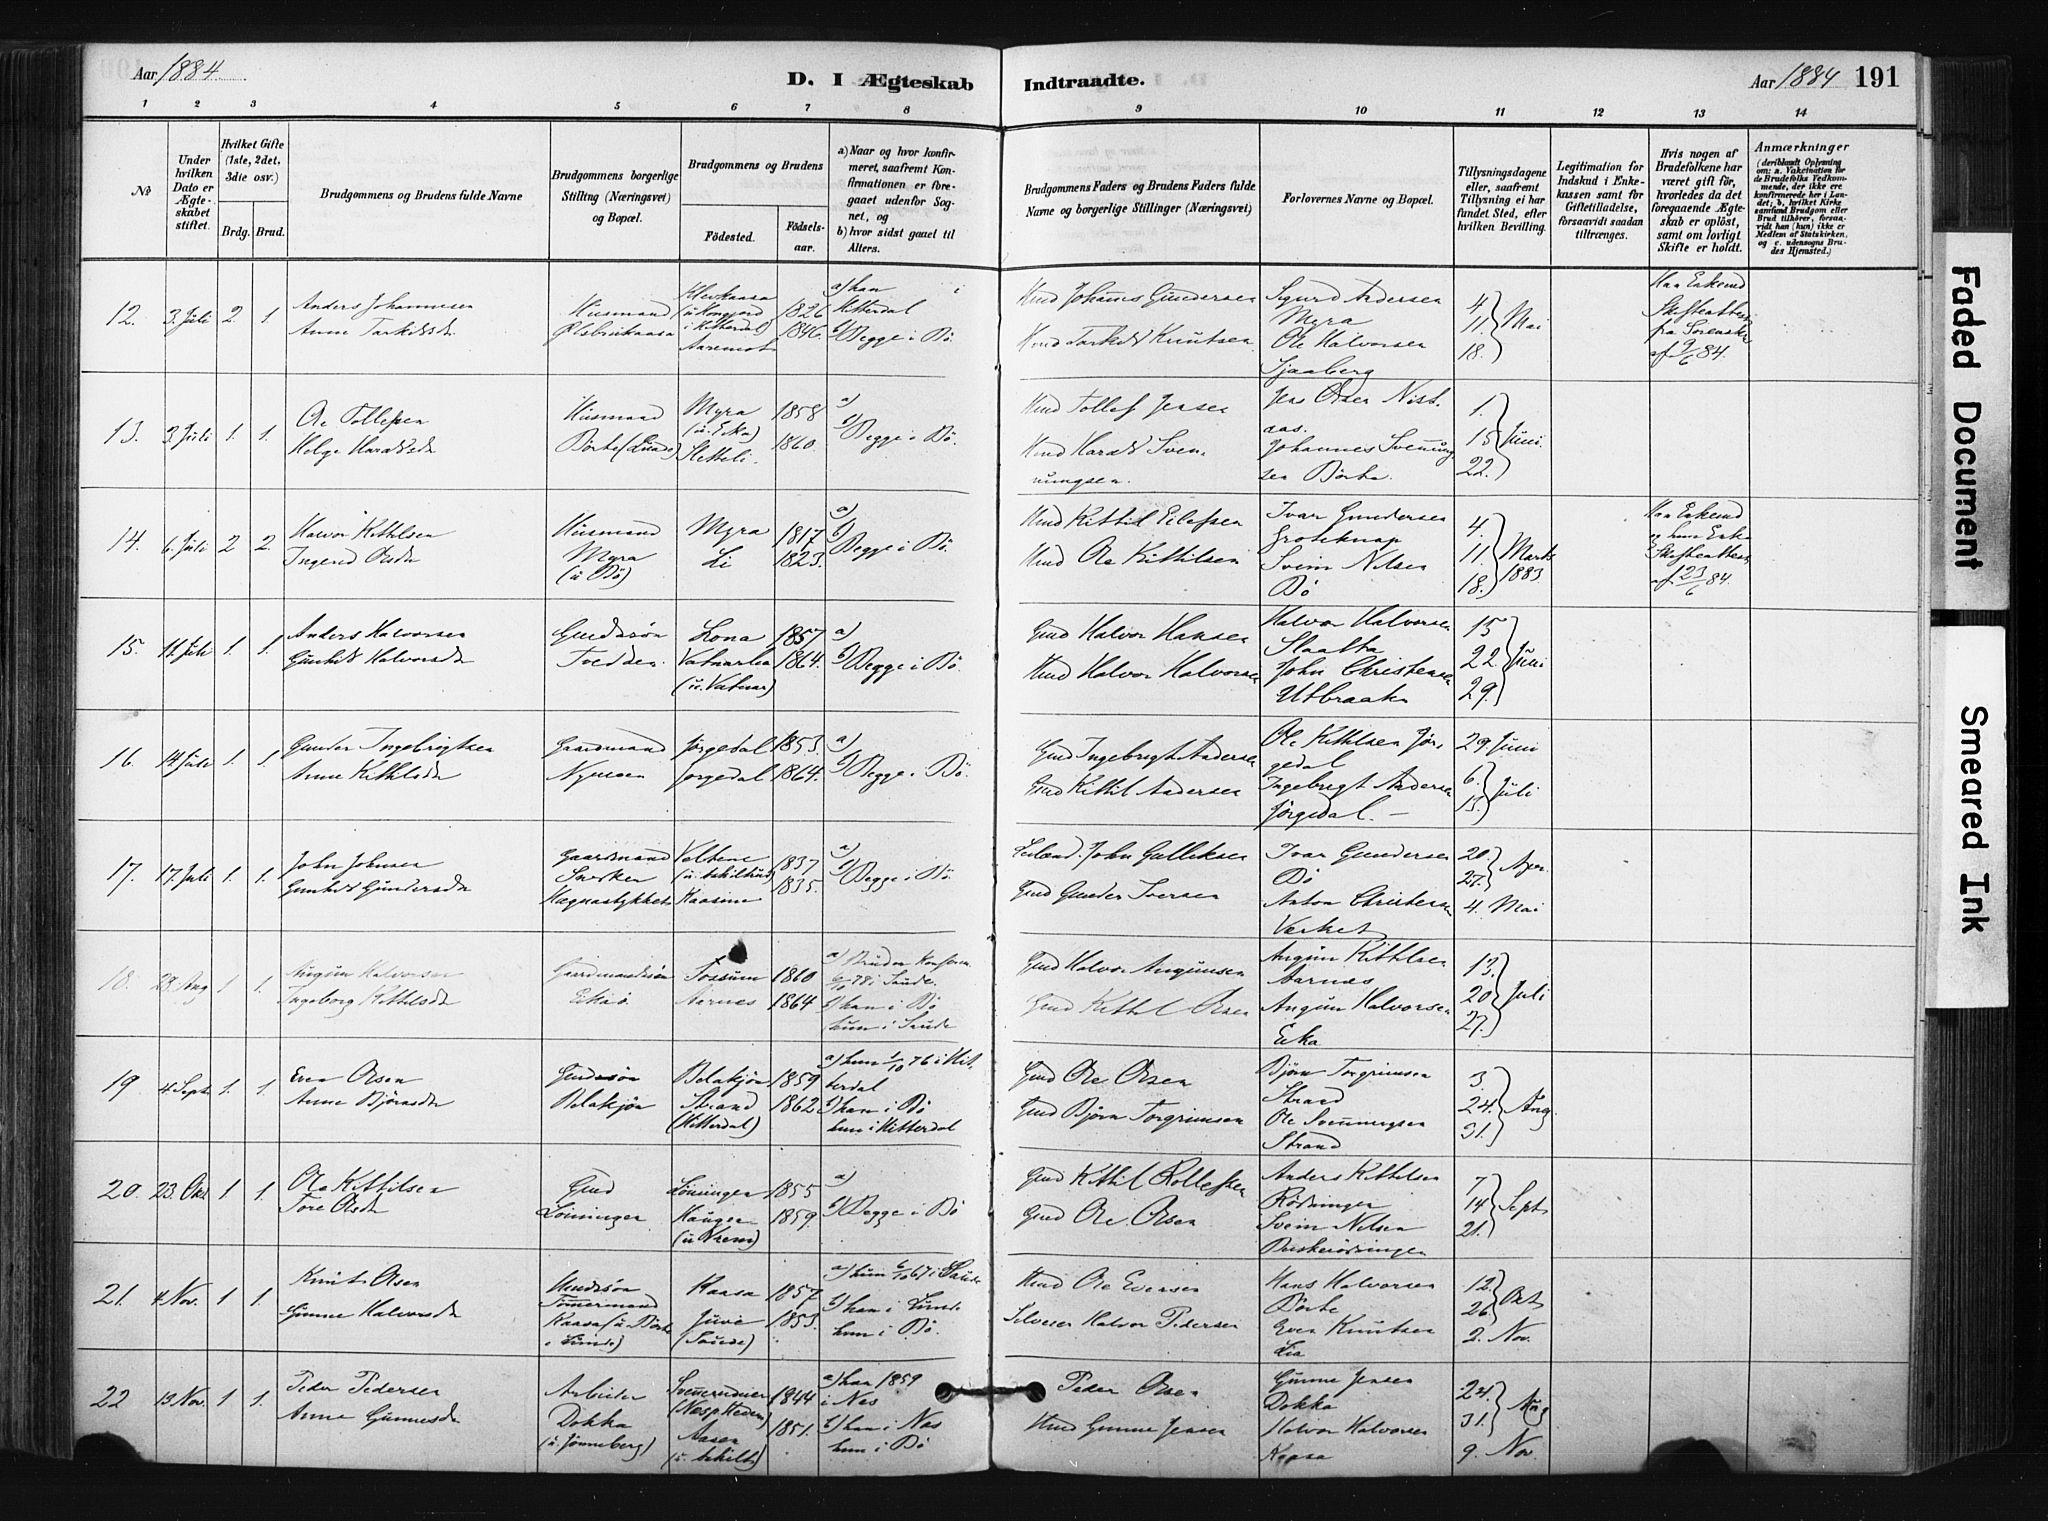 Aar 1884.
D. I Ægteskab Indtraadte.
Aar 1884 191
1 2 3 4 5 6 7 8 9 10 11 12 13 14
No
Under hvilken Dato er Ægteskabet stiftet.
Hvilket Gifte (1ste, 2det, 3die osv.)
Brdg. Brud.
Brudgommens og Brudens fulde Navne
Brudgommens borgerlige Stilling (Næringsvei) og Bopæl.
Brudgommens og Brudens
Fødested.
Fødselsaar.
a) Naar og hvor konfirmeret, saafremt Konfirmationen er foregaaet udenfor Sognet, og
b) hvor sidst gaaet til Alters.
Brudgommens Faders og Brudens Faders fulde Navne og borgerlige Stillinger (Næringsvei)
Forlovernes Navne og Bopæl.
Tillysningsdagene eller, saafremt Tillysning ei har fundet Sted, efter hvilken Bevilling.
Legitimation for Indskud i Enkekassen samt for Giftetilladelse, forsaavidt saadan tiltrænges.
Hvis nogen af Brudefolkene har været gift før, hvorledes da det foregaaende Ægteskab er opløst, samt om lovligt Skifte er holdt.
Anmærkninger (deriblandt Oplysning om: a. Vakcination for de Brudefolks Vedkommende, der ikke ere konfirmerede her i Landet; b. hvilket Kirkesamfund Brudgom eller Brud tilhører, forsaavidt han (hun) ikke er Medlem af Statskirken, og c. udensogns Brudes Hjemsted.)
12. 3. Juli 2. 1.
Anders Johannesen
Anne Tarkildsdr
Husmand
Klevkaasa
i Hitterdal)
1826
1846.
a) han i
Hitterdal
b) Begge i Bø.
Hmd Johanes Gundersen
Hmd Tarkild Knutsen
Sigurd Andersen
Myra
Ole Halvorsen
Sjaaberg
4 11. 18. Mai
Han Enkemd
Skifteattest
fra Sorenskr
af 9/6 84.
13. 3. Juli 1. 1.
Ole Tollefsen
Helge Haraldsdr
Husmand
Børte (Lunde)
Myra
(u. Eka)
Hetteli.
1858
1860.
a)
b) Begge i Bø.
Hmd Tollef Jensen
Hmd Harald Sven
nungsen.
Jens Olsen Nist.
aas.
Johannes Svennung
sen Børte.
1. 15 22. Juni.
14. 6. Juli 2 2.
Halvor Kittilsen
Ingerid Olsdr
Husmand
Myra
(u Bø)
Myra
Li
1817
1823.
a)
b) Begge i Bø.
Hmd Kittil Eilefsen
Hmd Ole Kittilsen
Ivar Gundersen
Groteknap
Svein Nilsen
Bø
4. 11. 18. Marts 1883
Han Enkemd
og hun Enke
Skifteattest
af 23/6 84.
15. 11. Juli 1. 1.
Anders Halvorsen
Gunhild Halvorsdr
Gmdssøn
Tvedden.
Lona
Vatnarlia
(u. Vatnar)
1857
1864.
a)
b) Begge i Bø.
Gmd Halvor Hansen
Hmd Halvor Halvorsen
Halvor Halvorsen
Slaatta
John Christensen
Utbraaten
15 22. 29. Juni
16. 14. Juli 1. 1.
Gunder Ingebrigtsen
Anne Kittilsdr
Gaardmand
Nymoen
Jørgedal
Jørgedal
1853.
1864.
a)
b) Begge i Bø.
Gmd Ingebrigt Andersen
Gmd Kittil Andersen
Ole Kittilsen Jør.
gedal
Ingebrigt Andersen
Jørgedal.
29. Juni
6. 13. Juli
17. 17. Juli 1. 1.
John Johnsen
Gunhild Gundersdr
Gaardmand
Kaasine
1837
1835.
a)
b) Begge i Bø.
John Gulliksen
Gmd Gunder Iversen
Ivar Gundersen
Bø
Anton Christensen
Verket
20. 27. Apr.
4. Mai
18. 28. Aug 1 1.
Angun Halvorsen
Ingeborg Kittilsdr
Gaardmandssøn
Eikaa
Fossum
Aarnes
1860
1864
a) Bruden Konfirm.
78 i Saude.
b) han i Bø
hun i Saude
Gmd Halvor Angunsen
Gmd Kittil Olsen
Angun Kittilsen
Aarnes
Angun Halvorsen
Eka
13. 20. 27. Juli
19 4. Sept 1. 1.
Even Olsen
Anne Bjørnsdr
Gmdssøn
Belakjøn
Belakjøn
Strand
(Hitterdal)
1859
1862
a) hun 1/10 76 i Hit
terdal
b) han i Bø
hun i Hitterdal
Gmd Ole Olsen
Gmd Bjørn Torgrimsen
Bjørn Torgrimsen
Strand
Ole Svennungsen
Strand
3. 24. 31. Aug
20. 23. Okt 1 1.
Ole Kittilsen
Tore Olsdr
Gmd
Lønninger
Lønningen
Haugen
1855
1859.
a)
b) Begge i Bø
Gmd Kittil Rollefsen
Gmd Ole Olsen
Anders Kittilsen
Rødningen
Svein Nilsen
7 14 21. Sept
21. 4. Nov. 1 1.
Knut Olsen
Gunne Halvorsdr
Hmdssøn
Tømmermand
Kaasa (u. Børte
i Lunde)
Kaasa
Juve
(Saude)
1857.
1853.
a) hun 6/10 67 i Saude
b) han i Lunde
hun i Bø.
Hmd Ole Evensen
Selveier Halvor Pedersen
Hans Halvorsen
Børte
Even Knutsen
Lia
12. 26. Okt
2. Nov.
22 13. Nov. 1 1.
Peder Pedersen
Anne Gunnesdr
Arbeider
Dokka
(u. Jønneberg)
(Nes p. Hedem)
Aasen
1844
1851.
a) han 1859
i Nes
b) han i Nes
hun i Bø
Peder Olsen
Hmd Gunne Jensen
Gunne Jensen
Dokka
Halvor Halvorsen
Kaasa
24. 31. Aug
9. Nov.
Faded Document
Smeared Ink